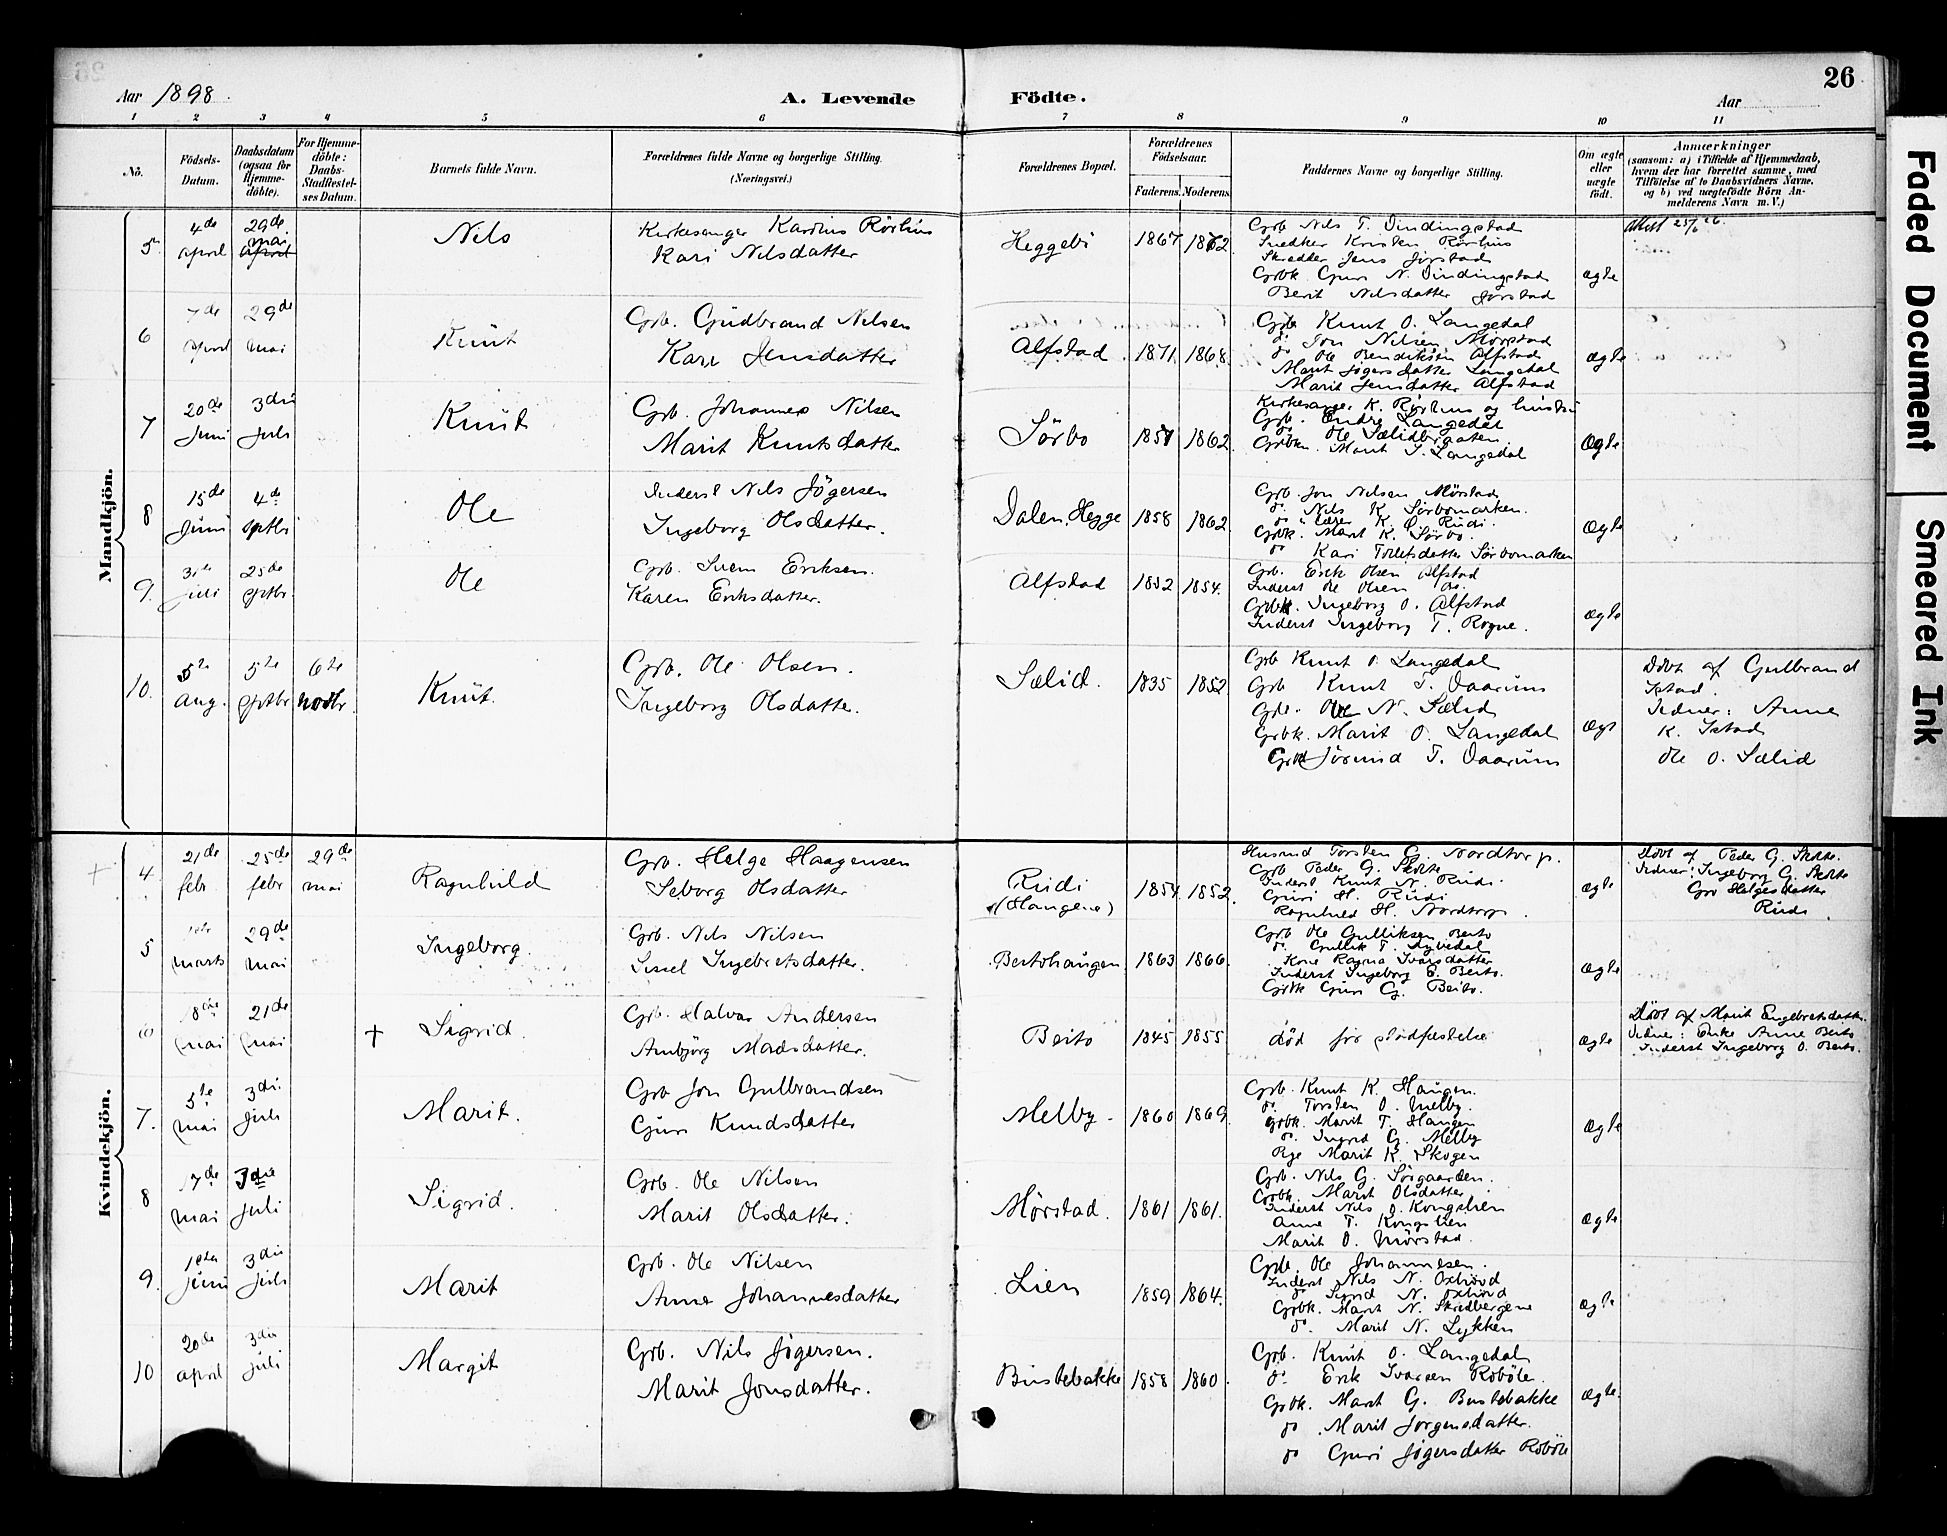 26
Aar 1898
A. Levende Födte.
Aar
1 2 3 4 5 6 7 8 9 10 11
No.
Födsels-Datum.
Daabsdatum (ogsaa for Hjemme-döbte).
For Hjemme-döbte: Daabs-Stadfæstel-ses Datum.
Barnets fulde Navn.
Forældrenes fulde Navne og borgerlige Stilling. (Næringsvei.)
Forældrenes Bopæl.
Forældrenes Födselsaar.
Faderens. Moderens.
Faddernes Navne og borgerlige Stilling.
Om ægte eller uægte födt.
Anmærkninger (saasom: a) i Tilfælde af Hjemmedaab, hvem der har forrettet samme, med Tilföielse af to Daabsvidners Navne, og b) ved uægtefödte Börn An-melderens Navn m. V.)
Mandkjön.
5. 4de april 29de mai april Nils
Kirkesanger Karthis Rörhus
Kari Nilsdatter
Heggebö 1867 1862
Grb Nils T. Vindingstad
Snedker Kristen Rörhus
Skrædder Jens Jörstad
Grbk. Guri N. Vindingstad
Berit Nilsdatter Jörstad
ægte
Attest
6 7de april 29de mai Knut
Grb. Gudbrand Nilsen
Kari Jensdatter
Alfstad 1871 1868
Grb Knut O. Langedal
do Jon Nilsen Mörstad
do Ole Bendiksen Alfstad
Marit Jögersdatter Langedal
Marit Jensdatter Alfstad
ægte
7 20de Juni 3die Juli Knut
Grb. Johannes Nilsen
Marit Knutsdatter
Sörbo 1857 1862
Kirkesanger K. Rörhus og hustru
Grb. Endre Langedal
do Ole Sælidbraaten
Grbk. Marit T. Langedal
ægte
8 15de Juni 4de septbr Ole
Inderst Nils Jögersen
Ingeborg Olsdatter.
Dalen, Hegge 1858 1862
Grb. Jon Nilsen Mörstad
do Nils K Sörbomarken.
K. O. Rudi.
Grbk. Marit K. Sörbo.
do Kari Tollefsdatter Sörbomarken
ægte
9. juli 25de septbr Ole
Grb. Svein Eriksen.
Karen Eriksdatter.
Alfstad 1852 1854.
Grb. Erik Olsen Alfstad
Inderst Ole Olsen do.
Grbk. Ingeborg O. Alfstad
Inderst Ingeborg T. Rogne.
ægte
10. 5te aug. 5te septbr 6te novbr. Knut.
Grb. Ole Olsen.
Ingeborg Olsdatter.
Sælid. 1835 1852
Grb Knut O. Langedal
Grb Knut T. Vaarum
Grb. Ole N. Sælid
Grbk. Marit O. Langedal
Grbk Jörund T. Vaarum
ægt
Döbt af Gulbrand
Istad.
Vidner: Anne
K. Istad
Ole O. Sælid
Kvindekjön.
+ 4. 21de febr 25de febr 29de mai Ragnhild
Grb. Helge Haagensen
Seborg Olsdatter
Rudi (Haugene) 1854 1852
Husmd Torsten G. Nordtorp.
Grb Peder G. Skolte
Inderst Knut N. Rudi.
Guri H. Rudi
Ragnhild H. Nordtorp.
ægte
Döbt af Peder G. Skolte.
Vidner: Ingeborg G. Skolte
Gro Helgesdatter
Rudi.
5 marts 29de mai Ingeborg.
Grb. Nils Nilsen
Sissel Ingebretsdatter.
Beitohaugen 1863 1866
Grb Ole Gulliksen Beito
do. Gullik T.
Kone Ragna Ivarsdatter
Inderst Ingeborg E. Beito.
Grbk Guri G. Beito.
ægte
6 18de mai 21de mai + Sigrid.
Grb. Halvor Andersen
Anbjörg Madsdatter.
Beito 1845 1855
död för stadfæstelse
ægte
Döbt af Marit Engebretsdatter.
Vidner: Enke Anne Beito
Inderst Ingeborg O. Beito.
7. 5te mai 3die Juli Marit.
Grb Jon Gulbrandsen
Guri Knudsdatter
Melby 1860 1869
Grb. Knut K. Haugen.
do. Torsten O. Melby.
Grbk. Marit T. Haugen
do. Ingrid G. Melby
Pige Marit K. Skogen
ægte
8 17de mai 3die Juli Sigrid.
Grb. Ole Nilsen
Marit Olsdatter.
Mörstad. 1861 1861.
Grb. Nils G. Sörgaarden.
Grbk. Marit Olsdatter
Inderst Nils O. Kongslien
Anne T. Kongslien
Marit O. Mörstad.
ægte
9. 1ste Juni 3die Juli Marit
Grb. Ole Nilsen
Anne Johannesdatter
Lien 1859 1864.
Grb. Ole Johannesen.
Inderst Nils N. Oxhovd
do Sigrid N. Oxhovd
Grbk. Marit N. Skredbergene
do. Marit N. Lykken
ægte
10 20de april 3die juli Margit
Grb. Nils Jögersen.
Marit Jonsdatter.
Bustebakke 1858 1860
Grb. Knut O. Langedal
do. Erik Ivarsen Roböle.
Grbk. Marit G. Bustebakke
do Marit Jörgensdatter.
do Guri Jögersdatter Roböle
ægte.
Faded Document
Smeared Ink